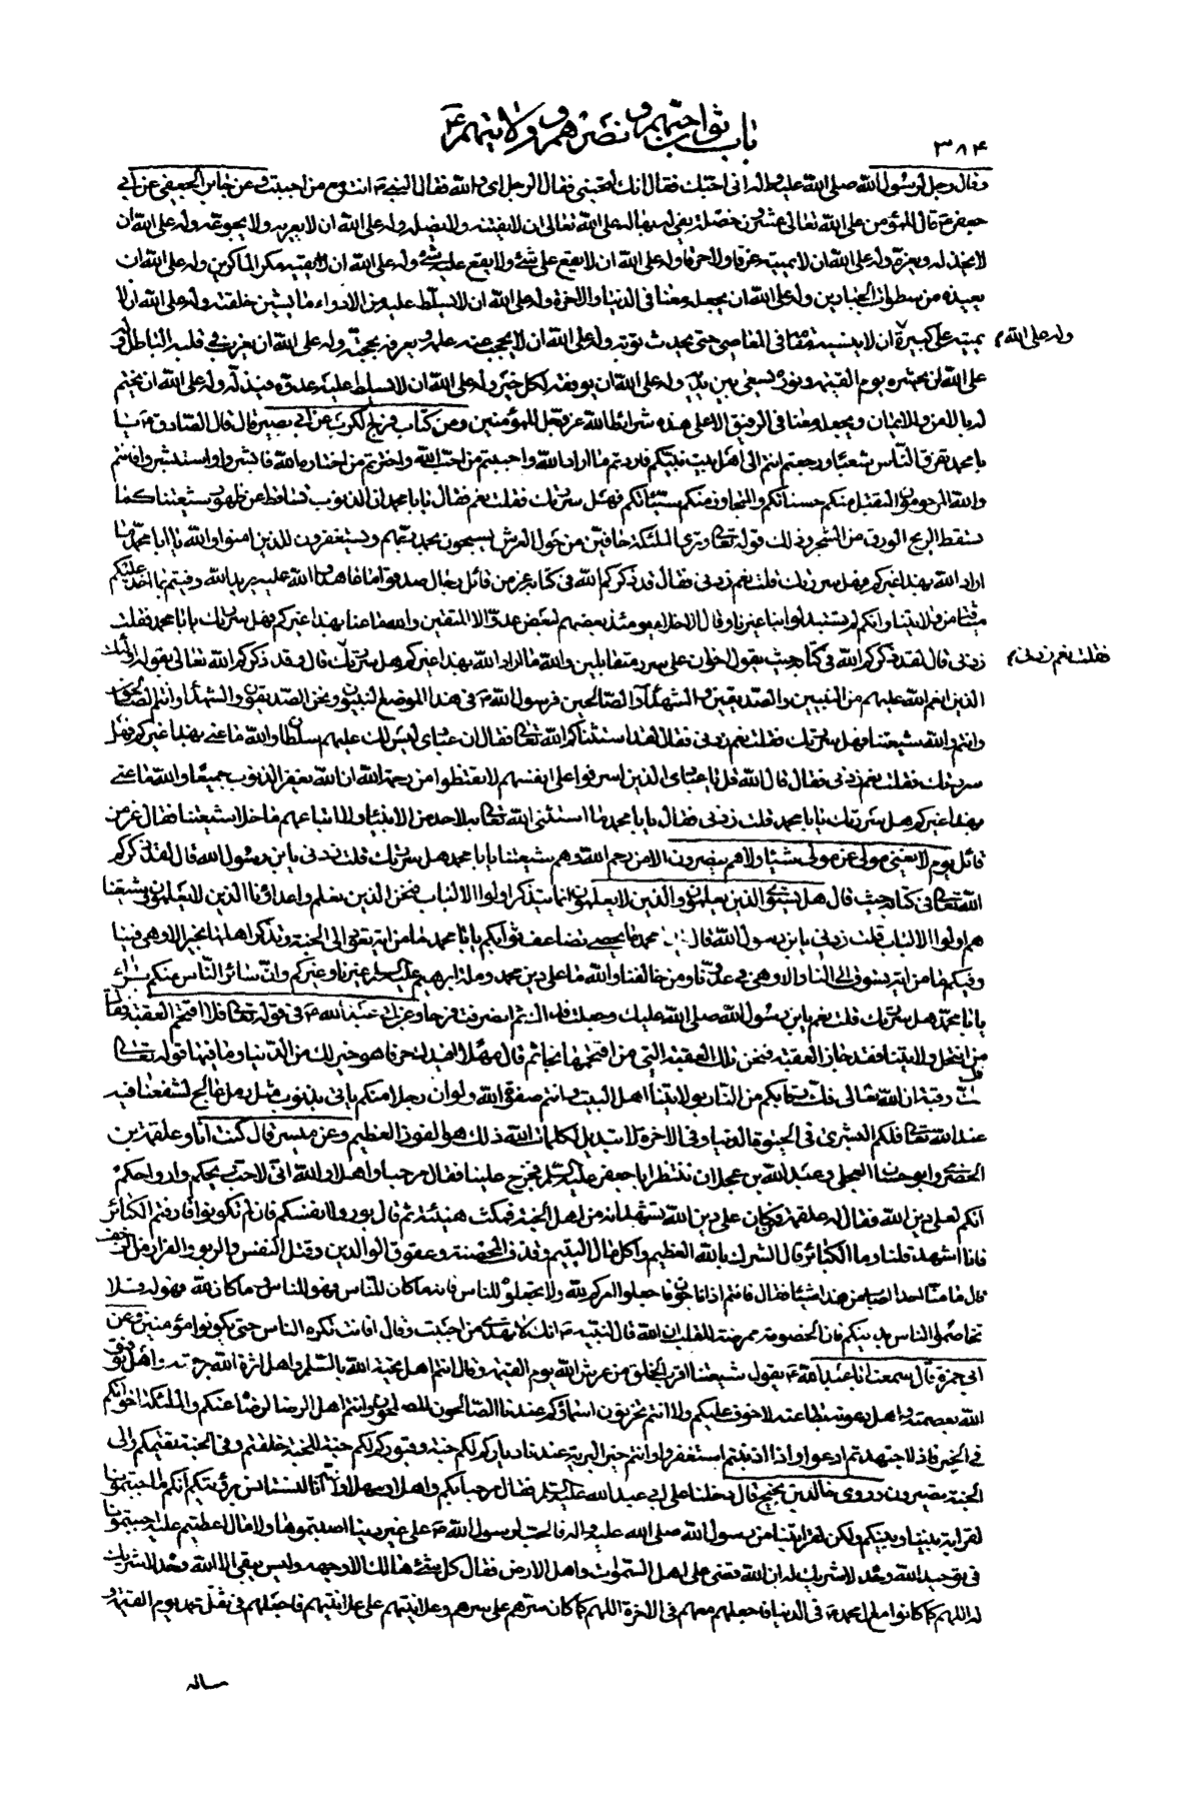 باب ثواب حبهم و نصرهم و ولايتهم ع
٣٨٤
وقال رجل لرسول الله صلى الله عليه واله انى احبك فقال انك لتحبنى فقال الرجل اى والله فقال النبى ص انت مع من احببت وعن جابر الجعفى عن ابى
جعفر ع قال للمؤمن على الله تعالى عشرون خصلة يفى له بها له على الله تعالى ان لا يفتنه ولا يضله وله على الله ان لا يعريه ولا يجوعه وله على الله ان
لا يخذله ويعزه وله على الله ان لا يميته غرقا ولا حرقا وله على الله ان لا يقع على شئ ولا يقع عليه شئ وله على الله ان يقيه مكر الماكرين وله على الله ان
يعيذه من سطوات الجبارين وله على الله ان يجعله معنا فى الدنيا والاخرة وله على الله ان لا يسلط عليه من الادواء ما يشين خلقته وله على الله ان لا
يميته على كبيرة ان لا ينسيه مقامه فى المعاصى حتى يحدث توبة وله على الله ان لا يحجب عنه علمه ويعرفه بحجته وله على الله ان يعزب فى قلبه الباطل وله
وله على الله م
على الله ان يحشره يوم القيمة ونوره يسعى بين يديه وله على الله ان يوفقه لكل خير وله على الله ان لا يسلط عليه عدوه فيذله وله على الله ان يختم
له بالامن والايمان ويجعله معنا فى الرفيق الاعلى هذه شرائط الله عز وجل للمؤمنين ومن كتاب فرج الكرب عن ابى بصير قال قال الصادق ع يا
با محمد تفرق الناس شعبا ورجعتم انتم الى اهل بيت نبيكم فاردتم ما اراد الله واحببتم من احب الله واخترتم من اختاره الله فابشروا واستبشروا فانتم
والله المرحومون المتقبل منكم حسناتكم والمتجاوز عنكم سيئاتكم فهل سررتك فقلت نعم فقال يا با محمد ان الذنوب تساقط عن ظهور شيعتنا كما
تسقط الريح الورق من الشجر وذلك قوله تعالى وترى الملئكة حافين من حول العرش يسبحون بحمد ربهم ويستغفرون للذين امنوا والله يا ابا محمد ما
اراد الله بهذا غيركم فهل سررتك قلت نعم زدنى فقال قد ذكركم الله فى كتابه عز من قائل رجال صدقوا ما عاهدوا الله عليه يريد الله وفيتم بما اخذ عليكم
ميثاقه من ولايتنا وانكم لم تستبدلوا بنا غيرنا وقال الاخلاء يومئذ بعضهم لبعض عدو الا المتقين والله ما عنا بهذا غيركم فهل سررتك يا با محمد فقلت
زدنى قال لقد ذكركم الله فى كتابه حيث يقول اخوانا على سرر متقابلين والله ما اراد الله بهذا غيركم هل سررتك قال وقد ذكركم الله تعالى بقوله اولئك
فقلت نعم زدنى م
الذين انعم الله عليهم من النبيين والصديقين والشهداء والصالحين فرسول الله ص فى هذا الموضع النبيون ونحن الصديقون والشهداء وانتم الصالحون
وانتم والله شيعتنا فهل سررتك فقلت نعم زدنى فقال لقد استثناكم الله تعالى فقال ان عبادى ليس لك عليهم سلطان والله ما عنى بهذا غيركم فهل
سررتك فقلت نعم زدنى فقال قال الله قل يا عبادى الذين اسرفوا على انفسهم لا تقنطوا من رحمة الله ان الله يغفر الذنوب جميعا والله ما عنى
بهذا غيركم هل سررتك يا با محمد قلت زدنى فقال يا با محمد ما استثنى الله تعالى به لاحد من الانبياء ولا اتباعهم ما خلا شيعتنا فقال عز من
قائل يوم لا يغنى مولى عن مولى شيئا ولا هم ينصرون الا من رحم الله وهم شيعتنا يا با محمد هل سررتك قلت زدنى يا بن رسول الله قال لقد ذكركم
الله تعالى فى كتابه حيث قال هل يستوى الذين يعلمون والذين لا يعلمون انما يتذكر اولوا الالباب فنحن الذين نعلم واعداؤنا الذين لا يعلمون وشيعتنا
هم اولوا الالباب قلت زدنى يا بن رسول الله قال يا با محمد ما يحصى تضاعف ثوابكم يا با محمد ما من اية تقود الى الجنة وتذكر اهلها بخير الا وهى فينا
وفيكم ما من اية تسوق الى النار الا وهى فى عدونا ومن خالفنا والله ما على دين محمد وملة ابرهيم عليه السلام غيرنا وغيركم وان سائر الناس منكم براء
يا با محمد هل سررتك قلت نعم يا بن رسول الله صلى الله عليك وجعلت فداك ثم انصرفت فرحا وعن ابى عبد الله ع فى قوله تعالى فلا اقتحم العقبة فقال
من انتحل ولايتنا فقد جاز العقبة فنحن تلك العقبة التى من اقتحمها نجا ثم قال مهلا افيدك حرفا هو خير لك من الدنيا وما فيها قوله تعالى
فك رقبة ان الله تعالى فك رقابكم من النار بولايتنا اهل البيت وانتم صفوة الله ولو ان رجلا منكم ياتى بذنوب مثل رمل عالج لشفعنا فيه
عند الله تعالى فلكم البشرى فى الحيوة الدنيا وفى الاخرة لا تبديل لكلمات الله ذلك هو الفوز العظيم وعن ميسر قال كنت انا وعلقمة بن
الحضرمى وابو حسان العجلى وعبد الله بن عجلان ننتظر ابا جعفر عليه السلام فخرج علينا فقال مرحبا واهلا والله انى لاحب ريحكم وارواحكم
انكم لعلى دين الله فقال له علقمة فمن كان على دين الله تشهد انه من اهل الجنة فمكث هنيئة ثم قال بوروا انفسكم فان لم تكونوا قارفتم الكبائر
فانا اشهد قلنا وما الكبائر قال الشرك بالله العظيم واكل مال اليتيم وقذف المحصنة وعقوق الوالدين وقتل النفس والربو والفرار من الزحف
قال ما منا احد اصاب من هذا شيئا فقال فانتم اذا ناجون فاجعلوا امركم لله ولا تجعلوه للناس فانه ما كان للناس فهو للناس وما كان لله فهو له فلا
تخاصموا الناس بدينكم فان الخصومة ممرضة للقلب ان الله قال لنبيه ص انك لا تهدى من احببت وقال افانت تكره الناس حتى يكونوا مؤمنين وعن
ابى حمزة قال سمعت ابا عبد الله ع يقول شيعتنا اقرب الخلق من عرش الله يوم القيمة وقال انتم اهل تحية الله بالسلام واهل اثرة الله برحمته واهل توفيق
الله بعصمته واهل دعوته بطاعته لا خوف عليكم ولا انتم تحزنون اسماؤكم عندنا الصالحون المصلحون وانتم اهل الرضا لرضاه عنكم والملئكة اخوانكم
فى الخير فاذا اجتهدتم ادعوا واذا اذنبتم استغفروا وانتم خير البرية عندنا دياركم لكم جنة وقبوركم لكم جنة للجنة خلقتم وفى الجنة نعيمكم والى
الجنة تصيرون وروى خالد بن نجيح قال دخلنا على ابى عبد الله عليه السلام فقال مرحبا بكم واهلا وسهلا والله انا لنستانس برؤيتكم انكم ما احببتمونا
لقرابة بيننا وبينكم ولكن لقرابتنا من رسول الله صلى الله عليه واله فالحب لرسول الله ص على غير دنيا اصبتموها ولا مال اعطيتم عليه احببتمونا
فى توحيد الله وحده لا شريك له ان الله قضى على اهل السموات واهل الارض فقال كل شئ هالك الا وجهه وليس يبقى الا الله وحده لا شريك
له اللهم كما كانوا مع ال محمد ص فى الدنيا فاجعلهم معهم فى الاخرة اللهم كما كان سرهم على سرهم وعلانيتهم على علانيتهم فاجعلهم فى ثقل محمد يوم القيمة و
ساله